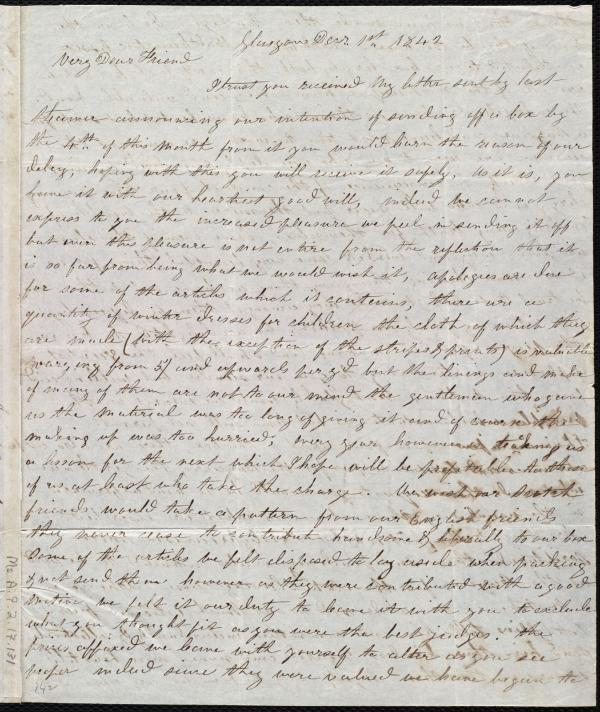 Glasgow Decr 1st 1842
Very Dear Friend
I trust you received My letter sent by last
Steamer announcing our intention of sending off a box by
the 4th of this Month from it you would learn the reason of our
delay, hoping with this you will receive it safely, as it is, you
have it with our heartiest good will, indeed we cannot
express to you the increased pleasure we feel in sending it off
but even this pleasure is not entire from the reflection that it
is so far from being what we would wish it, apologies are due
for some of the articles which it contains, there are a
quantity of winter dresses for children the cloth of which they
are made (with the exception of the stripes & prints) is valuable
varying from 5/ and upwards per yd but the linings and make
of many of them are not to our mind the gentlemen who gave
us the material was too long of giving it and of course the
making up was too hurried, every year however is teaching us
a lesson for the next which I hope will be profitable to those
of us at least who take the charge. We wish our Scotch
friends would take a pattern from our English friends
they never cease to contribute handsome & liberally to our box
Some of the articles we felt disposed to lay aside when packing
& not send them however as they were contributed with a good
motive we felt it our duty to leave it with you to exclude
what you thought fit as you were the best judges. the
prices affixed we leave with yourself to alter as you see
proper indeed since they were valued we have begun to
Ms.A.9.2.17.131
142